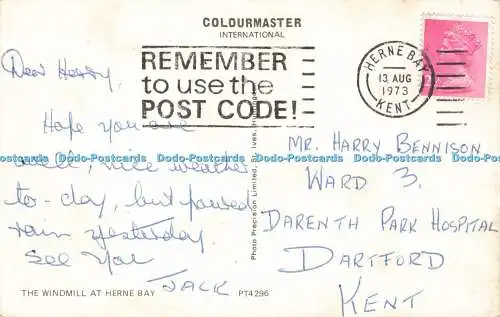 COLOURMASTER
INTERNATIONAL
REMEMBER
to use the
POST CODE!
HERNE BAY
13 AUG
1973
KENT
Dear Harry,
Hope you are
well, nice weather
to-day, but poured
rain yesterday.
See You
JACK
Photo Precision Limited, St. Ives, Huntingdon
MR. HARRY BENNISON
WARD 3.
DARENTH PARK HOSPITAL
DARTFORD
KENT
THE WINDMILL AT HERNE BAY
PT4296
Dodo-Postcards Dodo-Postcards Dodo-Postcards Dodo-Postcards Dodo-Postcards Dodo-Postcards